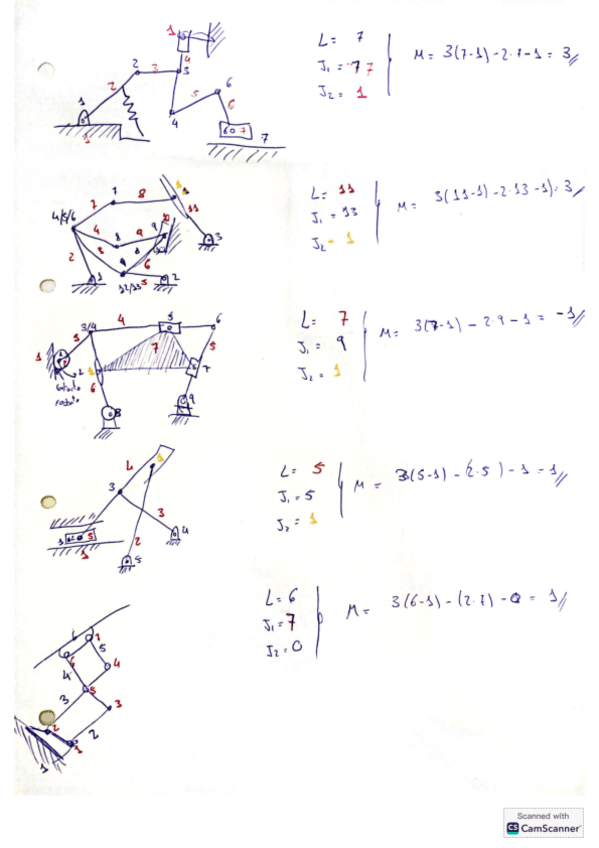 L= 7
J₁= 7 7
J₂= 1
M= 3(7-1)-2·7-1= 3//
1
4
2
3
3
2
1
5
6
4
6
7
1
L= 11
J₁= 13
J₂- 1
M= 3(11-1)-2·13-1)= 3/
7
8
11
4/5/6
4
9
3
2
8
3
6
1
12/13
5
2
L= 7
J₁= 9
J₂= 1
M= 3(7-1)-2·9-1= -1//
4
5
6
3/4
3
5
1
7
2
7
6
8
9
L= 5
J₁= 5
J₂= 1
M= 3(5-1)-(2·5)-1=1//
L
3
3
4
5
2
1
5
L= 6
J₁= 7
J₂= 0
M= 3(6-1)-(2·7)-0= 1//
7
6
5
4
4
5
3
3
2
2
1
1
Scanned with
CS CamScanner